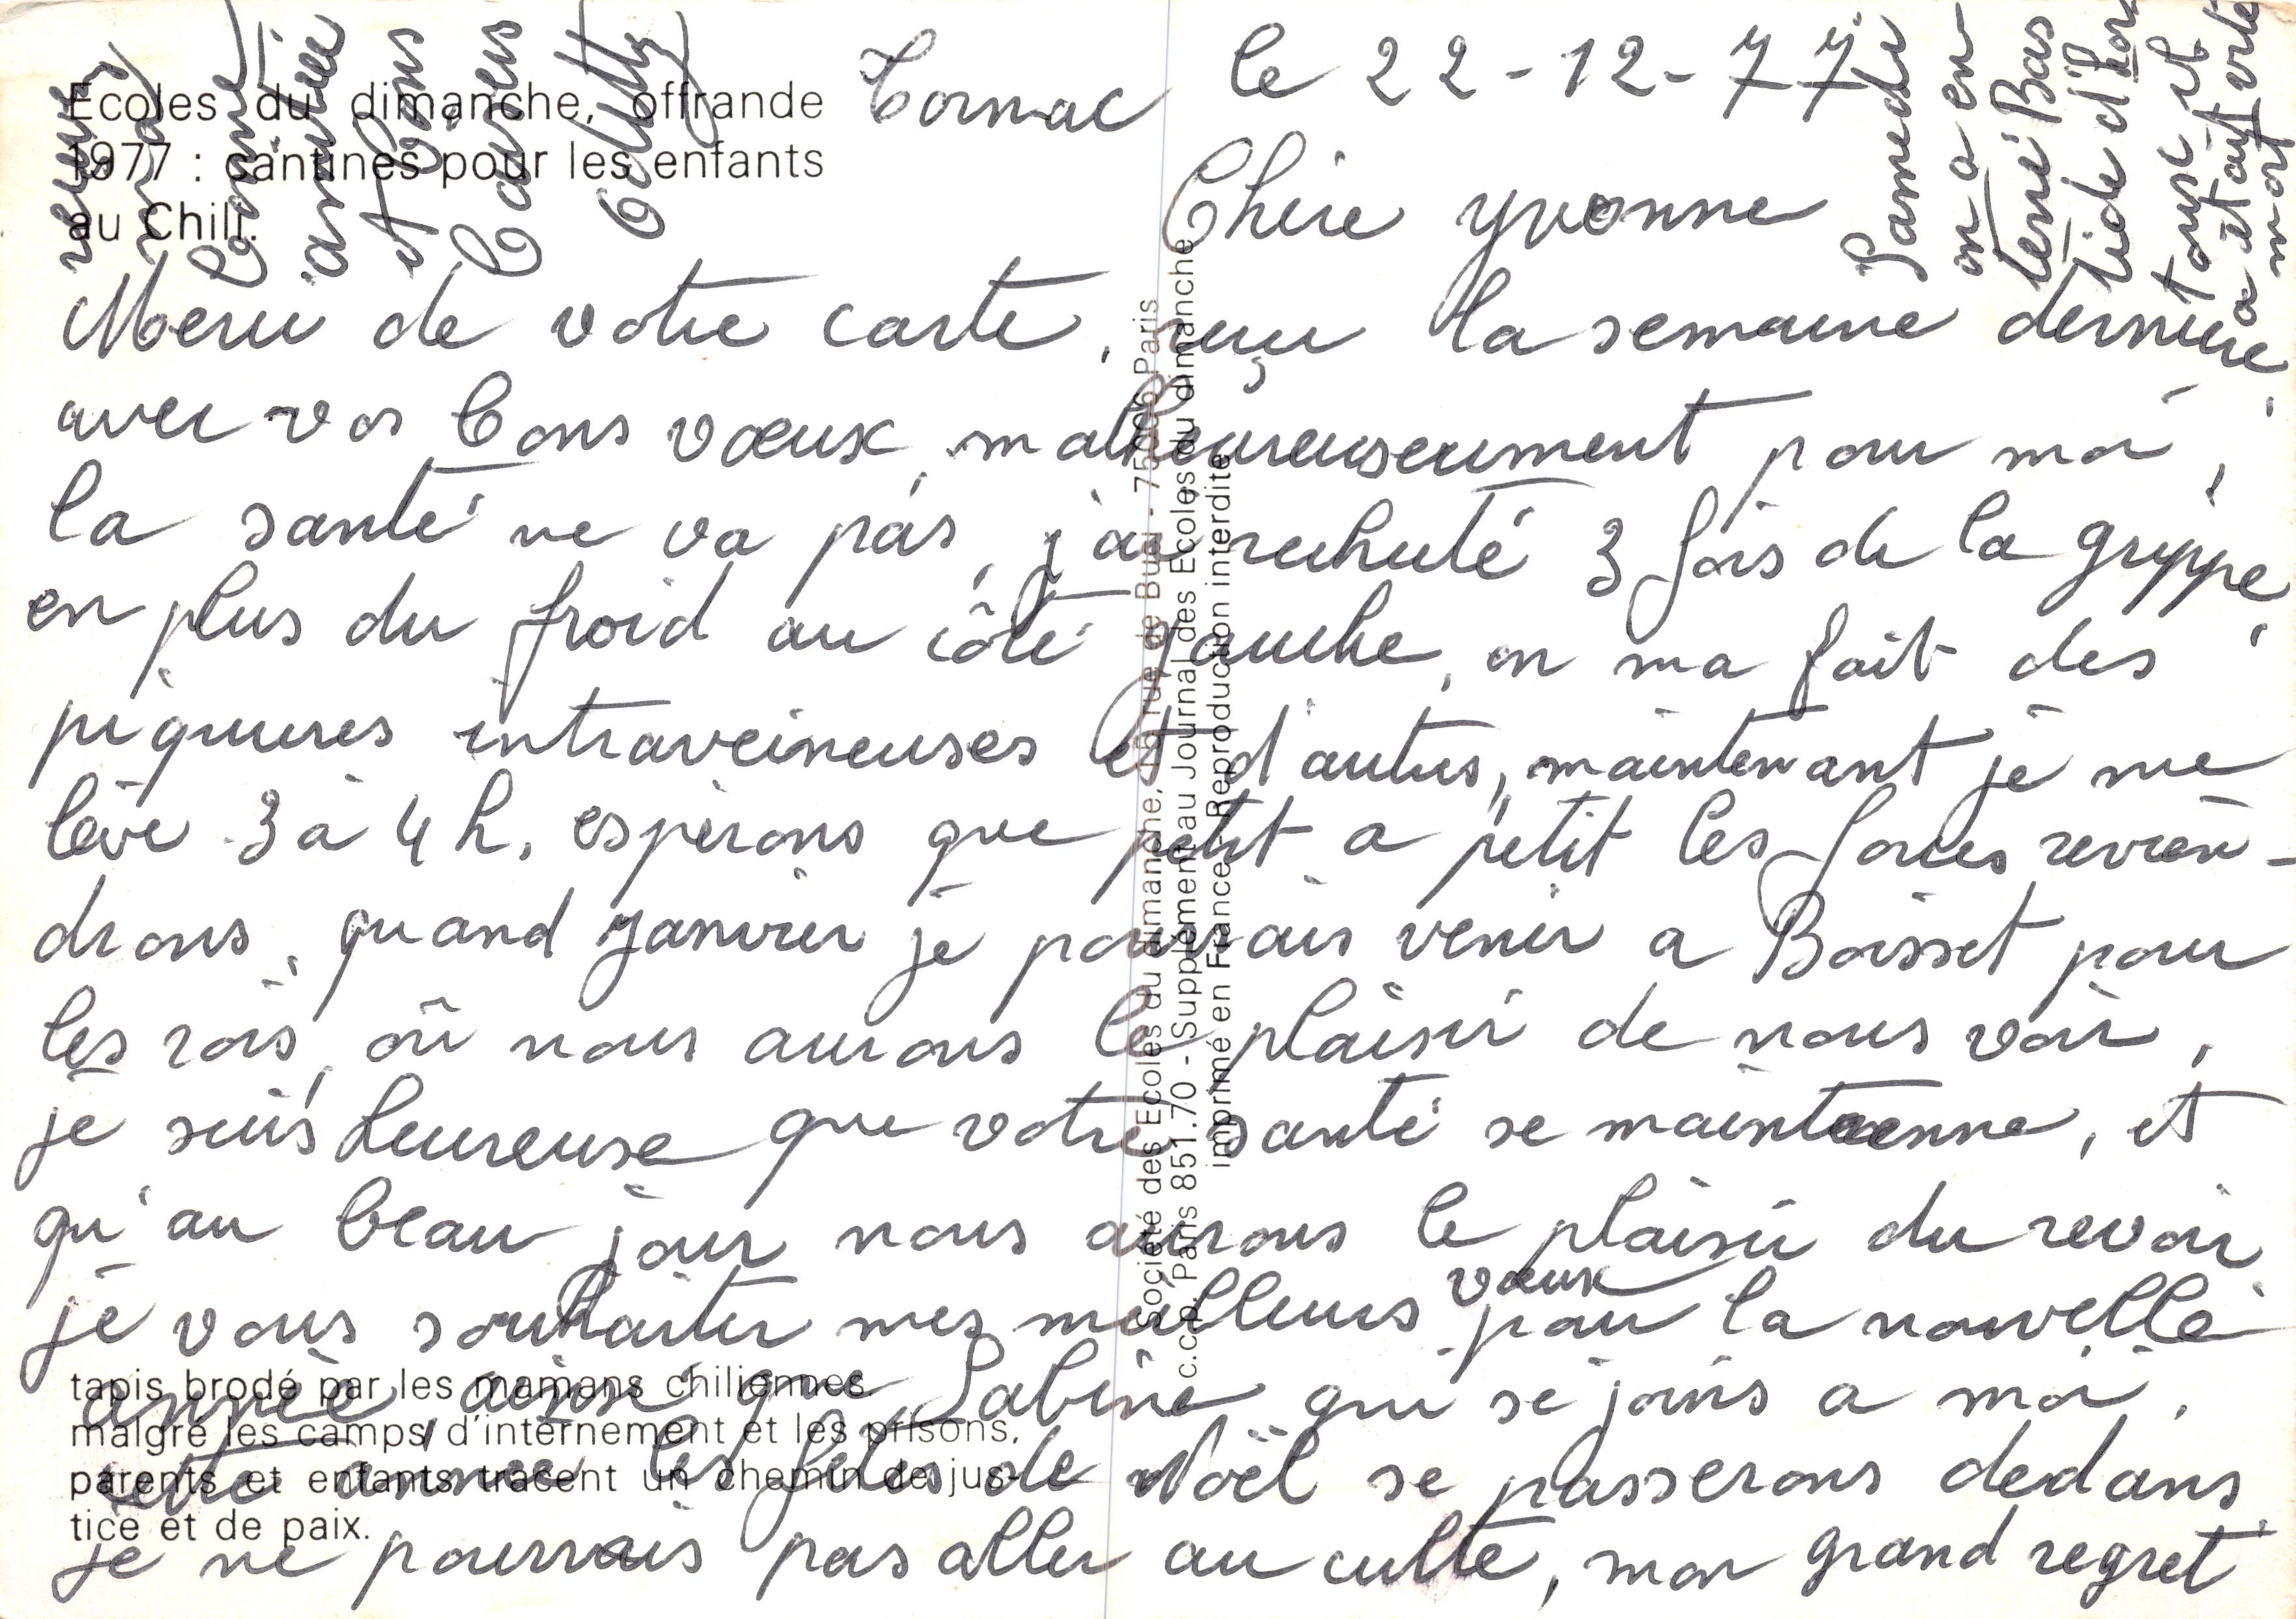 Ecoles du dimanche, offrande
1977 : cantines pour les enfants
au Chili.
Tornac le 22-12-77
Chère Yvonne
Merci de votre carte, reçu la semaine dernière
avec vos bons vœux, malheureuseument pour moi,
la santé ne va pas, j'ai rechuté 3 fois de la grippe
en plus du froid au côté gauche, on ma fait des
piqures intraveineuses et d'autres, maintenant je me
lève 3 à 4 h, espérons que petit a petit les forces revien-
drons, quand Janvier je pourrais venir a Boisset pour
les rois, où nous aurons le plaisir de nous voir,
je suis heureuse que votre santé se maintienne, et
qu'au beau jour nous aurons le plaisir du revoir
je vous souhaiter mes meilleurs vœux pour la nouvelle
année ainsi que Sabine qui se joins a moi,
cette année les fetes de Noël se passerons dedans
je ne pourrais pas aller au culte, mon grand regret
Samedi
on a en-
terré Bas
tide d'
et
a était
mort
Bonne
année
et bons
baisers
tapis brodé par les mamans chiliennes.
malgré les camps d'internement et les prisons,
parents et enfants tracent un chemin de jus-
tice et de paix.
Société des Ecoles du dimanche, 15 rue de Buci - 75006 Paris
c.c.p. Paris 851.70 - Supplément au Journal des Ecoles du dimanche
imprimé en France - Reproduction interdite